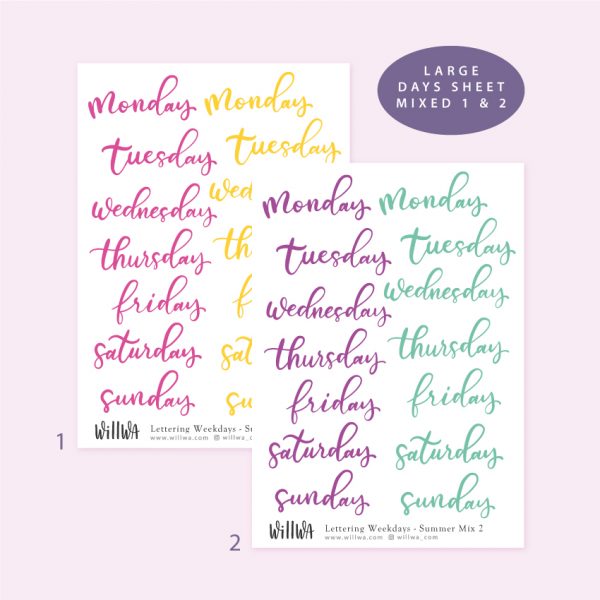 LARGE
DAYS SHEET
MIXED 1 & 2
monday monday
tuesday tuesday
wednesday
thursday
friday
saturday
sunday
willwa Lettering Weekdays - Summer
www.willwa.com willwa_c
1
monday monday
tuesday tuesday
wednesday wednesday
thursday thursday
friday friday
saturday saturday
sunday sunday
willwa Lettering Weekdays - Summer Mix 2
www.willwa.com willwa_com
2